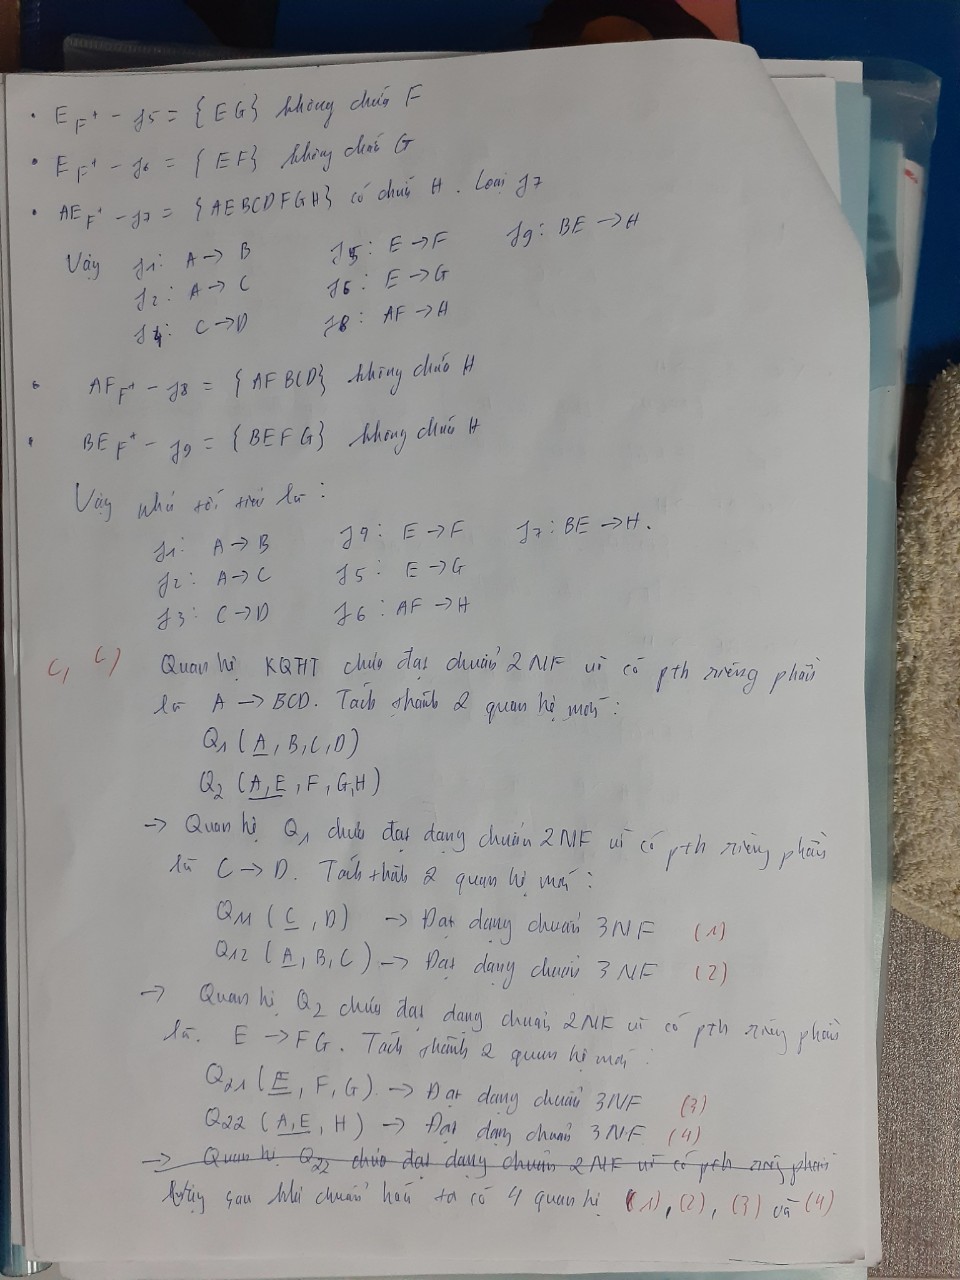 • E F⁺ - f5 = { EG } không chứa F
• E F⁺ - f6 = { EF } không chứa G
• AE F⁺ - f7 = { AEBCDFGH } có chứa H. Loại f7
Vậy f1: A → B f5: E → F f9: BE → H
f2: A → C f6: E → G
f4: C → D f8: AF → H
• AF F⁺ - f8 = { AFBCD } không chứa H
• BE F⁺ - f9 = { BEFG } không chứa H
Vậy phủ tối tiểu là:
f1: A → B f9: E → F f7: BE → H.
f2: A → C f5: E → G
f3: C → D f6: AF → H
C, C) Quan hệ KQHT chưa đạt chuẩn 2NF vì có pth riêng phần
là A → BCD. Tách thành 2 quan hệ mới:
Q1 (A, B, C, D)
Q2 (A, E, F, G, H)
→ Quan hệ Q1 chưa đạt dạng chuẩn 2NF vì có pth riêng phần
là C → D. Tách thành 2 quan hệ mới:
Q11 (C, D) → Đạt dạng chuẩn 3NF (1)
Q12 (A, B, C) → Đạt dạng chuẩn 3NF (2)
→ Quan hệ Q2 chưa đạt dạng chuẩn 2NF vì có pth riêng phần
là. E → FG. Tách thành 2 quan hệ mới:
Q21 (E, F, G) → Đạt dạng chuẩn 3NF (3)
Q22 (A, E, H) → Đạt dạng chuẩn 3NF (4)
→ Quan hệ Q22 chưa đạt dạng chuẩn 2NF vì có pth riêng phần
Vậy sau khi chuẩn hoá ta có 4 quan hệ (1), (2), (3) và (4)